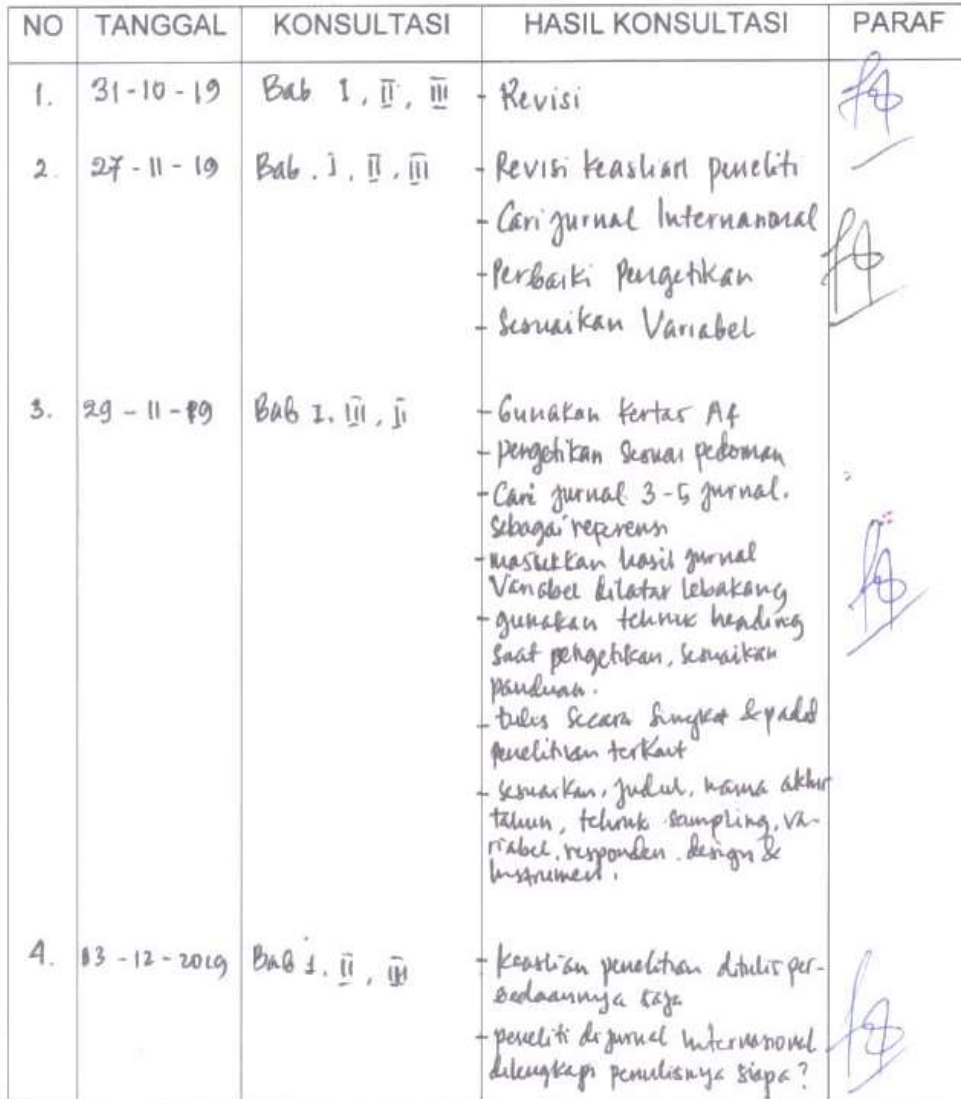 NO TANGGAL KONSULTASI HASIL KONSULTASI PARAF
1. 31-10-19 Bab I, II, III - Revisi
2. 27-11-19 Bab. I, II, III - Revisi keaslian peneliti
- Cari jurnal Internasional
- Perbaiki Pengetikan
- Sesuaikan Variabel
3. 29-11-19 Bab I, III, II - Gunakan kertas A4
- pengetikan sesuai pedoman
- Cari jurnal 3-5 jurnal.
sebagai referensi
- masukkan hasil jurnal
Variabel dilatar lebakang
- gunakan tehnik heading
saat pengetikan, sesuaikan
panduan.
- tulis secara singkat & padat
penelitian terkait
- sesuaikan, judul, nama akhir
tahun, tehnik sampling, va-
riabel, responden, design &
Instrumen.
4. 13-12-2019 Bab I, II, III - Keaslian penelitian ditulis per-
bedaannya saja
- peneliti di jurnal internasional
dilengkapi penulisnya siapa?